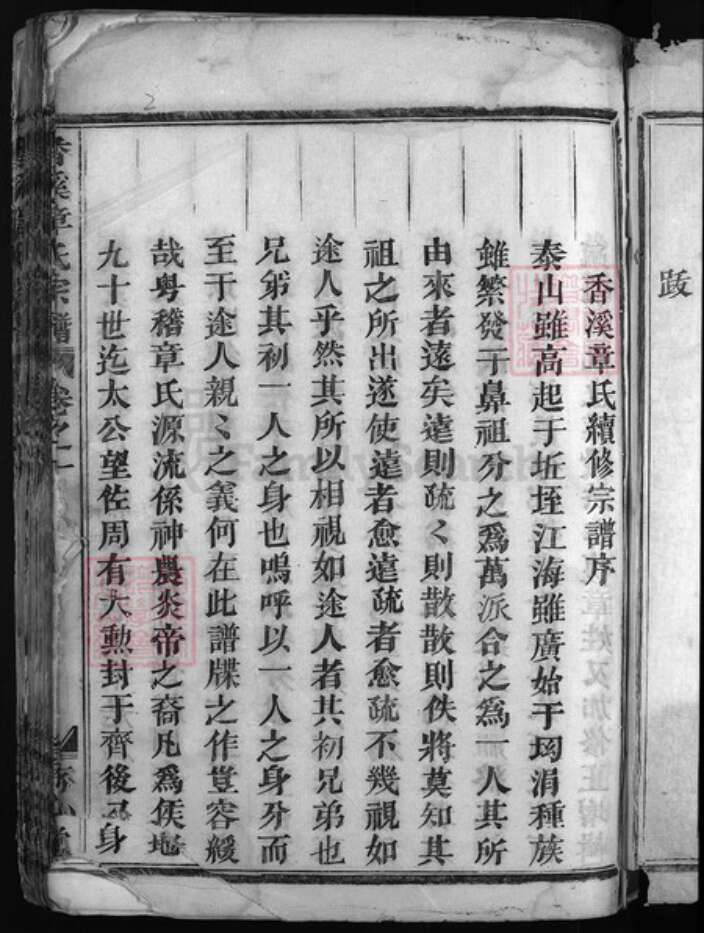 跋
香溪章氏續修宗譜序
泰山雖高起于圻垤江海雖廣始于涓種族
雖繁發于鼻祖分之爲萬派合之爲一人其所
由來者遠矣遠則疏〻則散散則佚將莫知其
祖之所出遂使遠者愈遠疏者愈疏不幾視如
途人乎然其所以相視如途人者其初兄弟也
兄弟其初一人之身也嗚呼以一人之身分而
至于途人親〻之義何在此譜牒之作豈容緩
哉粤稽章氏源流係神農炎帝之裔凡爲侯
九十世迄太公望佐周有大勲封于齊後身
香溪章氏宗譜 卷之
2
FamilySearch